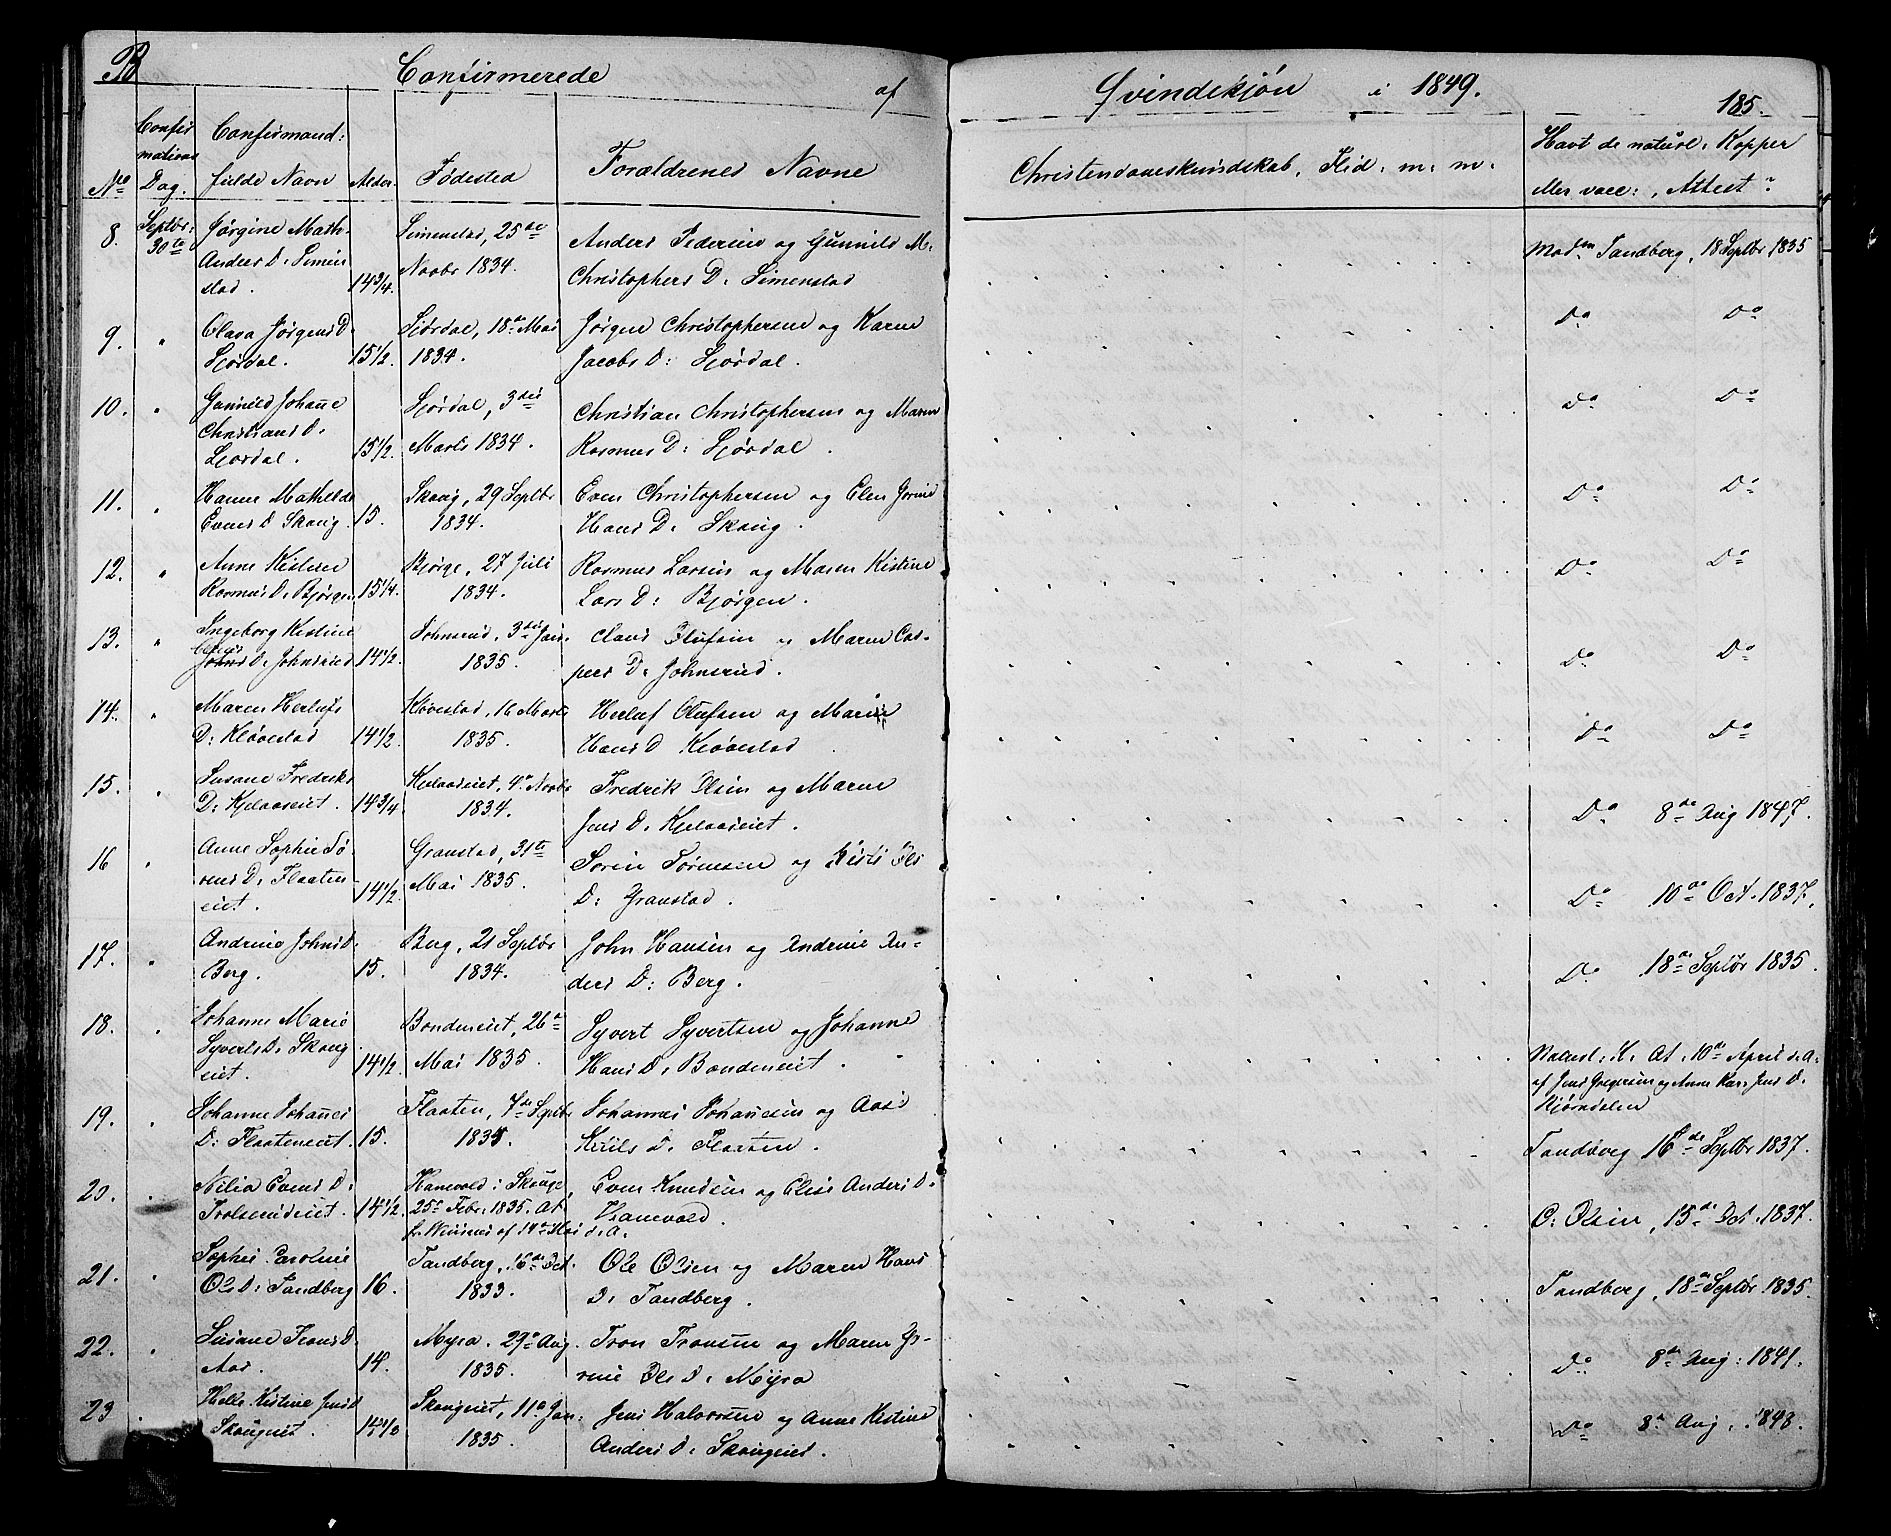 B Confirmerede af Qvindekjön i 1849. 185.
No Confirmations Dag. Confirmand: fulde Navn Alder. Födested Forældrenes Navne Christendomskundskab, Flid. m. m. Havt de naturl: Kopper eller vacc:, Attest?
8. Septbr: 30te Jørgine Math. Anders D: Simenstad. 14 3/4. Simenstad, 25de Novbr 1834. Anders Pedersen og Gunnild M. Christophers D: Simenstad Madm Tandberg, 18 Septbr 1835
9. " Olava Jørgens D. Sjørdal. 15 1/2. Sjørdal, 18de Mai 1834. Jørgen Christophersen og Karen Jacobs D: Sjørdal. Do Do
10. " Gunnild Johanne Christians D. Sjørdal. 15 1/2. Sjørdal, 3die Marts 1834. Christian Christophersen og Maren Rasmus D: Sjørdal. Do Do
11. " Hanne Mathilde Evens D Skoug. 15. Skoug, 29 Septbr 1834. Even Christophersen og Elen Hans D: Skoug. Do Do
12. " Anne Kistine Rasmus D. Bjørgen 15 1/4. Bjørge, 27 Juli 1834. Rasmus Larsen og Maren Kistine Lars D: Bjørgen. Do Do
13. " Ingeborg Kistine Johns D: Johnsrud 14 1/2. Johnsrud, 3die Jan. 1835. Claus Olufsen og Maren Caspers D: Johnsrud. Do Do
14. " Maren Herlufs D: Kløvestad 14 1/2. Kløvestad, 16 Marts 1835. Herluf Olufsen og Maren Hans D Kløvestad Do Do
15. " Susane Fredriks D: Kjelaaseiet. 14 3/4 Kjelaaseiet, 4de Novbr 1834. Fredrik Olsen og Maren Jens D. Kjelaaseiet. Do 8de Aug 1847.
16 " Anne Sophie Sørens D. Flaateneiet. 14 1/2. Granstad, 31te Mai 1835. Søren Sørensen og Kisti Ols D: Granstad. Do 10de Oct. 1837.
17. " Andrine Johns D. Berg. 15. Berg, 21 Septbr 1834. John Hansen og Andrine Anders D: Berg. Do 18de Septbr 1835.
18. " Johanne Marie Syverts D. Skougeiet. 14 1/2. Bondeneiet, 26de Mai 1835. Syvert Syvertsen og Johanne Hans D. Bondeneiet. At. 10de April d. A. af Jens Gregersen og Anne Kar. Jens D. Kjørndalen
19. " Johanne Johannes D: Flaateneiet. 15. Flaaten, 7de Septbr 1834. Johannes Johannesen og Aase D. Flaaten. Tandberg 16de Septbr 1837.
20. " Nilia Evens D. Trolsrudeiet. 14 1/2. Hanevold i Skouge, 25de Febr: 1835. At. fr. af 14de Mai d. A. Even Knudsen og Elise Anders D. Hanevold. O. Olsen, 15de Oct. 1837.
21. " Sophie Caroline Ols D: Tandberg 16. Tandberg, 16de Oct. 1833. Ole Olsen og Maren Hans D. Tandberg. Tandberg, 18de Septbr 1835.
22. " Susane Trons D. Aas. 14. Myra, 29de Aug. 1835. Tron Tronsen og Maren Jørine Ols D. Myra Do 8de Aug: 1841.
23. Helle Kistine Jens D Skougeiet. 14 1/2 Skougeiet, 11de Jan: 1835. Jens Halvorsen og Anne Kistine Anders D. Skougeiet. Do 8de Aug. 1843.